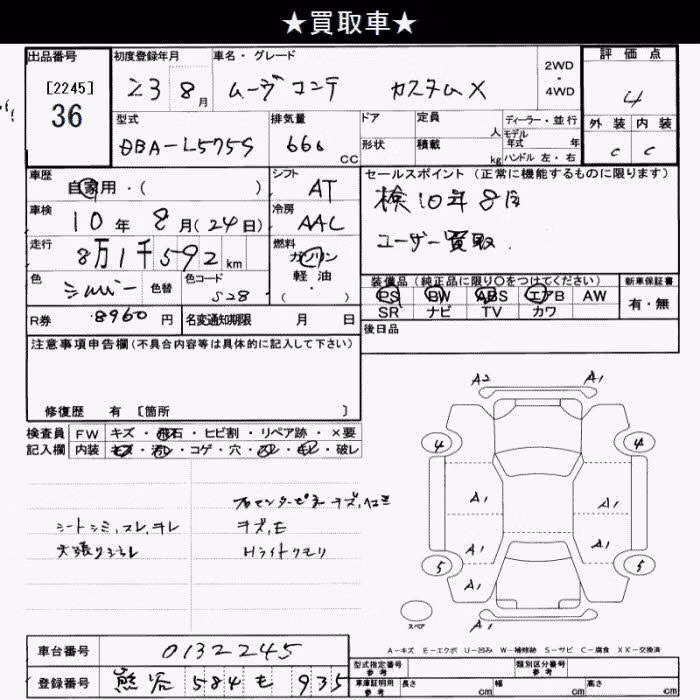 ★買取車★
出品番号 初度登録年月 車名・グレード 2WD・4WD 評価点
[2245]
36
23 8月 ムーヴコンテ カスタムX 4
型式 排気量 ドア 定員 人 ディーラー・並行 外装 内装
DBA-L575S 660 CC 形状 積載 kg モデル年式 年 ハンドル 左・右 C C
車歴 シフト セールスポイント (正常に機能するものに限ります)
自家用・( ) AT 検10年8月
車検 冷房
10年8月(24日) AAC ユーザー買取.
走行 燃料
8万1千592km ガソリン
色 色コード 軽油・( ) 装備品 (純正品に限り○をつけてください) 新車保証書
シルバー 色替 S28 PS PW ABS エアB AW 有・無
SR ナビ TV カワ
R券 8960円 名変通知期限 月 日 後日品
注意事項申告欄(不具合内容等は具体的に記入して下さい)
修復歴 有 [箇所 ]
検査員 FW キズ・飛石・ヒビ割・リペア跡・×要
記入欄 内装 キズ・汚レ・コゲ・穴・スレ・キレ・破レ
シートシミ,スレ,キレ キズ,E
天張りシミ Hライトクモリ
A2 A1
4 4
A1 A1
A1 A1
5 5
A1
A1
スペア
A-キズ E-エクボ U-凹み W-補修跡 S-サビ C-腐食 XX-交換済
車台番号 0132245
型式指定番号 参考 類別区分番号 参考
登録番号 熊谷 584 も 935
車庫証明用 参考 長さ cm 幅 cm 高さ cm